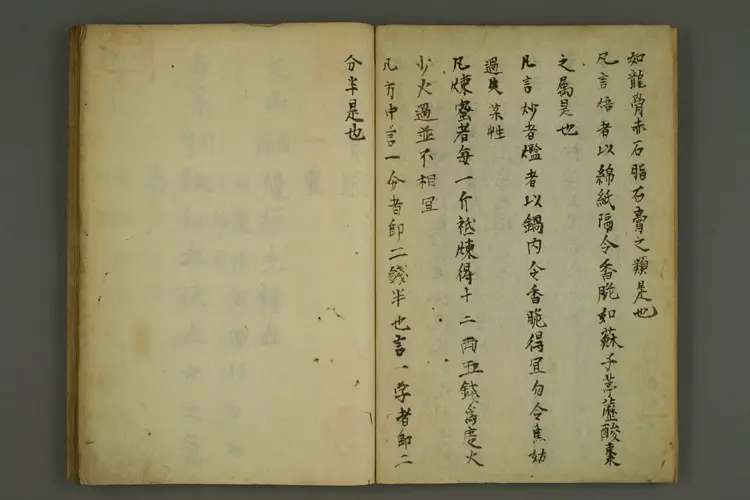 如龍骨赤石脂石膏之類是也
凡言焙者以綿紙隔令香脆如蘇子葶藶酸棗
之属是也
凡言炒者爁者以鍋内令香脆得宜勿令焦妨
過失藥性
凡煉蜜者每一斤祗煉得十二両五銭為度火
少火過並不相宜
凡方中言一分者即二錢半也言一字者即二
分半是也